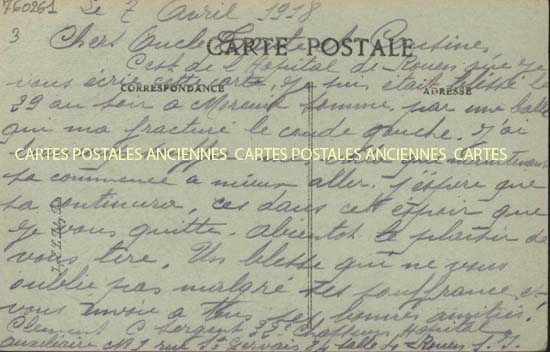 760261 Le 7 Avril 1918
3 Chers Oncle Tante et Cousines
CARTE POSTALE
C'est de l'Hopital de Rouen que je
vous écrie cette carte, Je suis était blessé le
CORRESPONDANCE ADRESSE
29 au soir a Moreuil Somme, par une balle
qui ma fracturé le coude gauche. J'ai
CARTES POSTALES ANCIENNES CARTES POSTALES ANCIENNES CARTES
maintenant
sa commence a mieux aller. J'espère que
sa continuera, ces dans cet espoir que
je vous quitte. abientot le plaisir de
vous lire. Un blesse qui ne vous
oublie pas malgré ses souffrance et
vous envoie a tous ses bonnes amitiés,
Clement C Sergent 35e Chasseurs Hopital
auxiliaire No 1 rue St Gervais 84 salle 4 Rouen S. I.